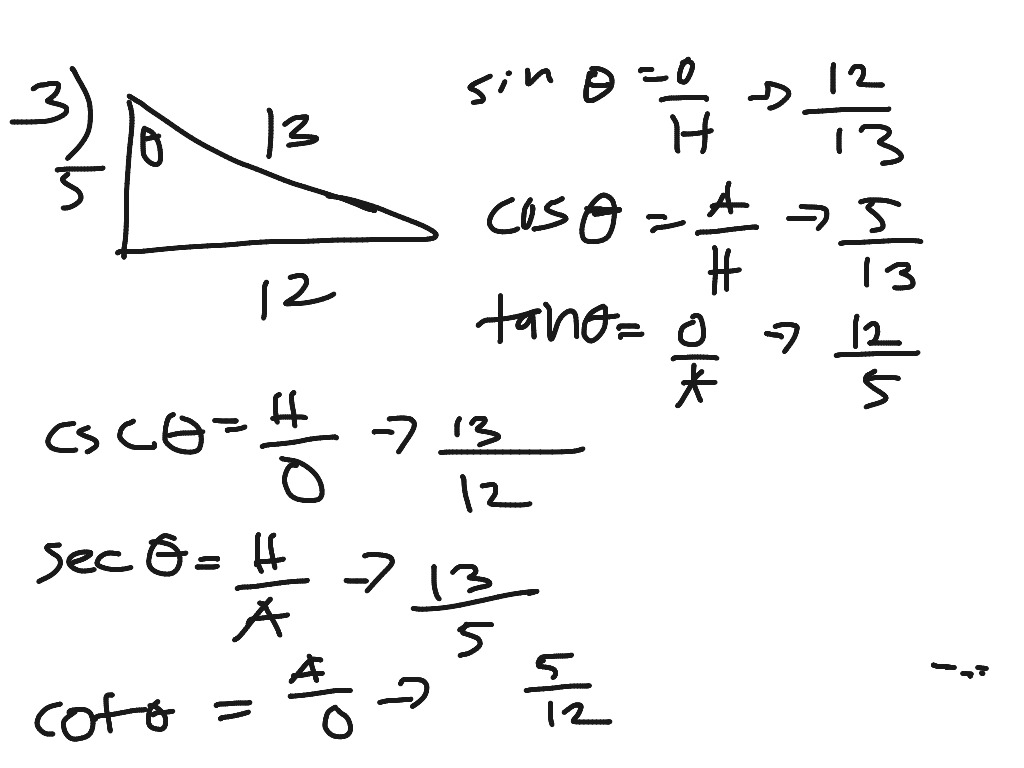 3)
5
θ
13
12
sin θ = O/H → 12/13
cos θ = A/H → 5/13
tan θ = O/A → 12/5
csc θ = H/O → 13/12
sec θ = H/A → 13/5
cot θ = A/O → 5/12